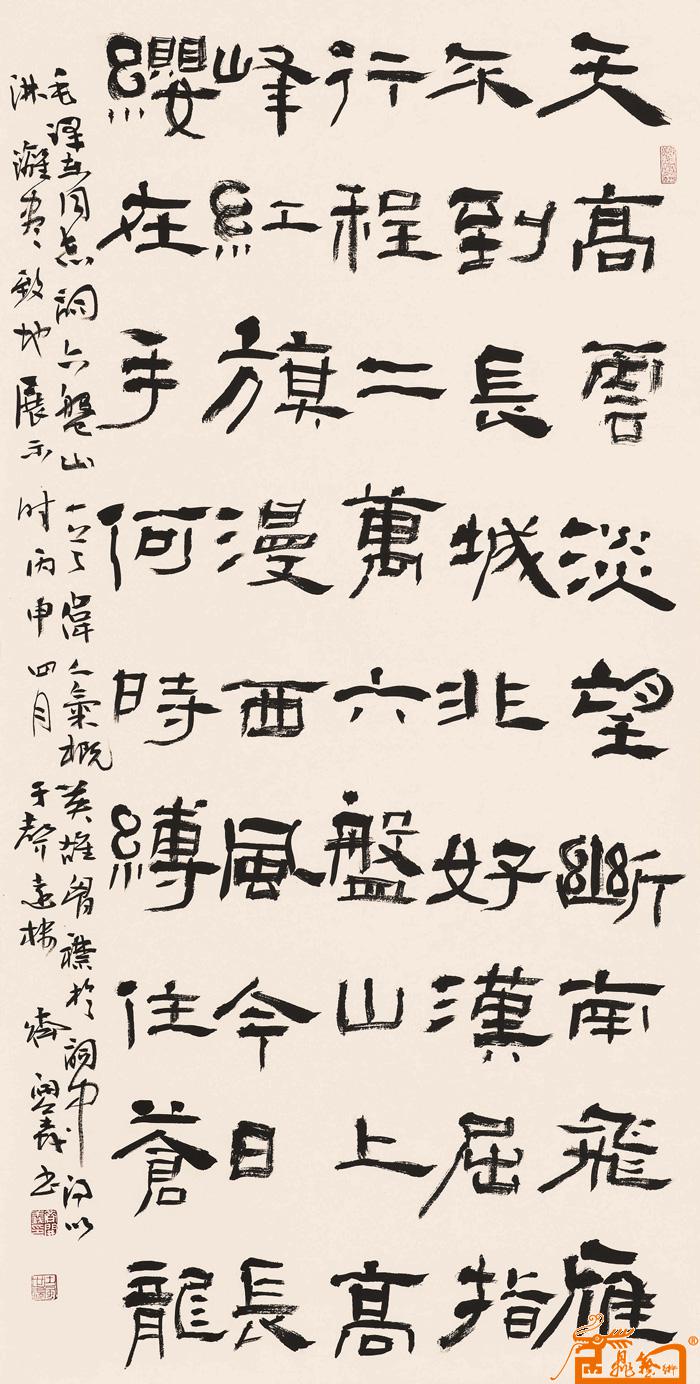 天高雲淡望斷南飛雁
不到長城非好漢屈指
行程二萬六盤山上高
峰紅旗漫西風今日長
纓在手何時縛住蒼龍
毛泽东同志詞六盤山偉人氣概英雄胸襟於詞中得以
淋漓尽致地展示 时丙申四月 于聲遠樓 书